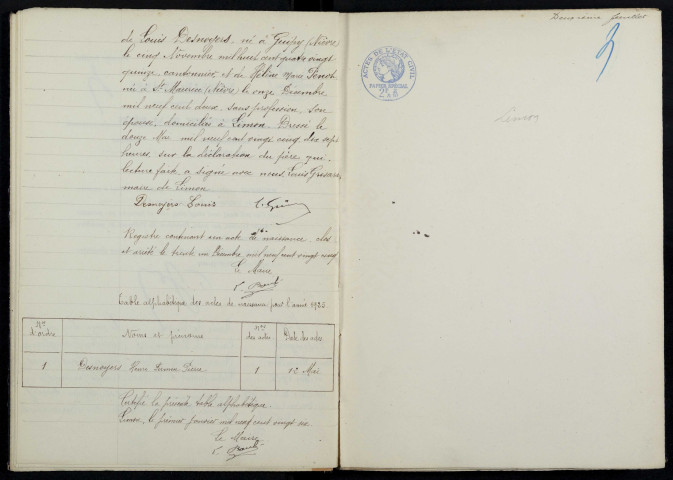 de Louis Desnoyers, né à Guipy (Nièvre)
le cinq Novembre mil huit cent quatre vingt
quinze cantonnier et de Hélène Marie
née à St Maurice (Nièvre) le onze Décembre
mil neuf cent deux, sans profession, son
épouse, domiciliés à Limon. Dressé le
douze Mai mil neuf cent vingt cinq, dix sept
heures, sur la déclaration du père qui
lecture faite a signé avec nous, Louis
maire de Limon.
Desnoyers Louis
Registre contenant un acte de naissance, clos
et arrêté le trente un Décembre mil neuf cent vingt cinq
Le Maire
Table alphabétique des actes de naissance pour l'année 1925
Nos d'ordre Noms et prénoms Nos des actes Date des actes
1 Desnoyers Pierre 1 12 Mai
Certifié la présente table alphabétique.
Limon, le premier janvier mil neuf cent vingt six
Le Maire
Deuxième feuillet
ACTES DE L'ETAT CIVIL
PAPIER SPECIAL
Limon